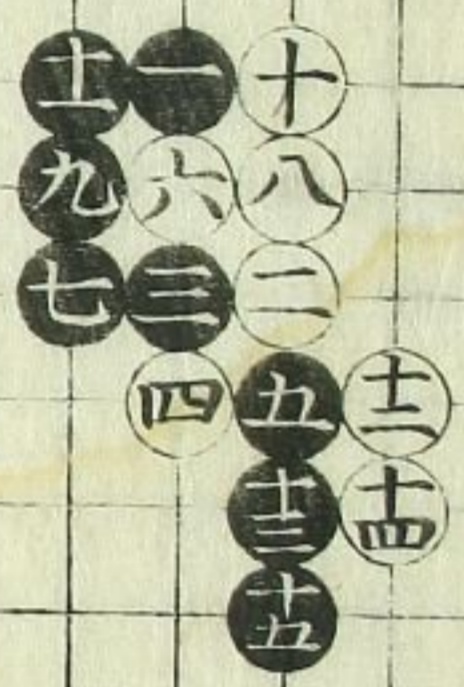 十一 一 十
九 六 八
七 三 二
四 五 十二
十三 十四
十五